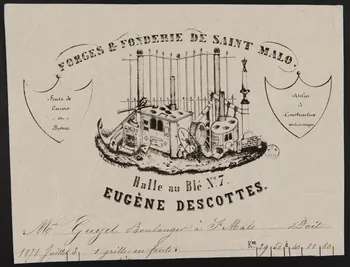 FORGES & FONDERIE DE SAINT MALO.
Fonte de
Cuivre
en
Bronze
Atelier
de
Construction
mécanique
Halle au Blé Nº 7.
EUGÈNE DESCOTTES.
Mr Boulanger à St Malo Doit
Juillet 2. 1 grille en fonte